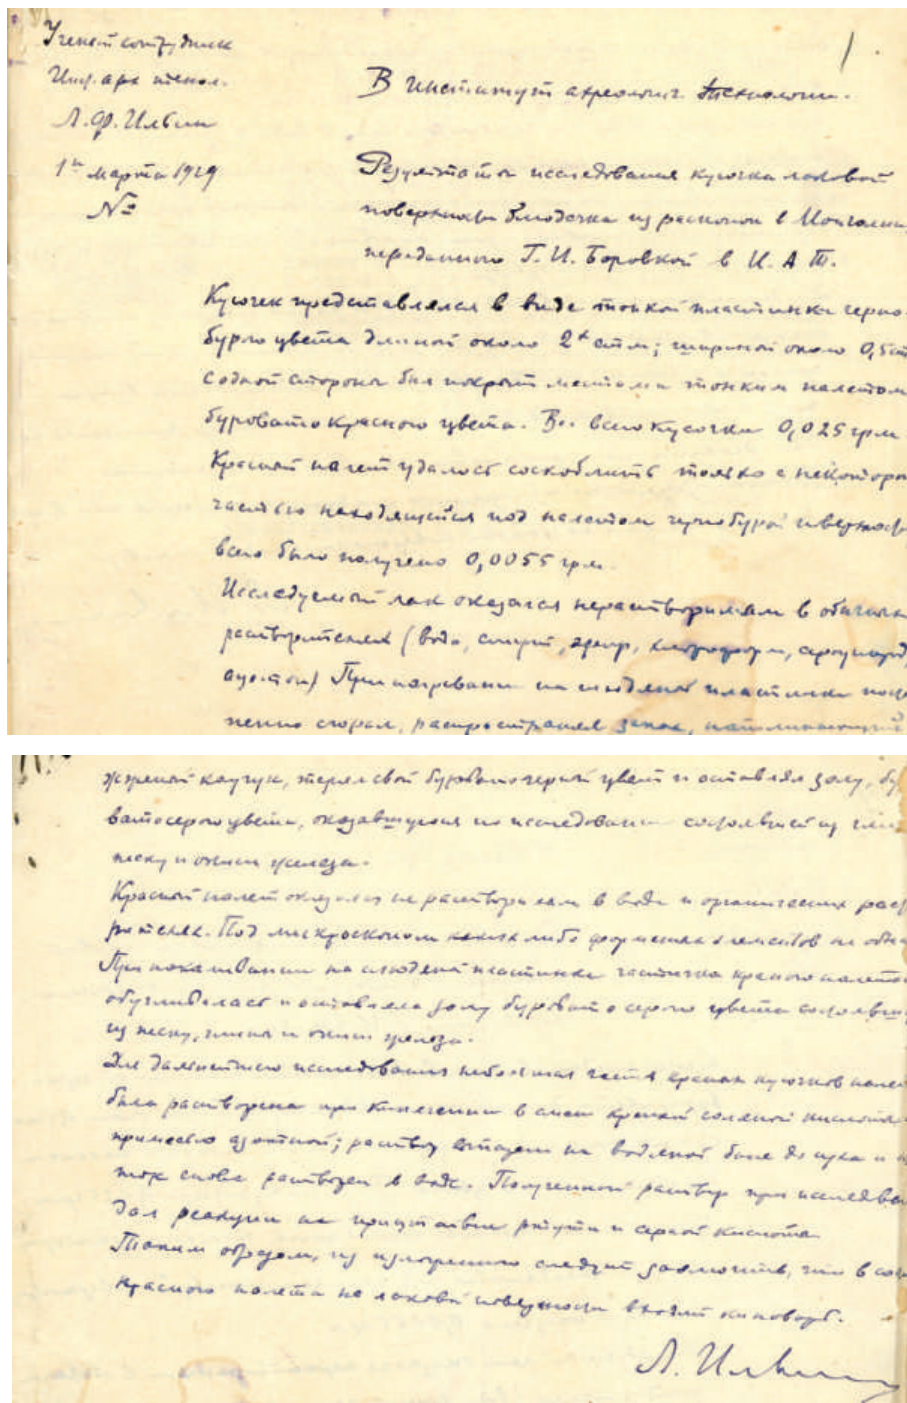 Ученый сотрудник
Инст. арх. технол.
Л.Ф. Ильин
1го марта 1929
№
1.
В Институт археологич. технологии.
Результаты исследования кусочка лаковой
поверхности блюдечка из раскопок в Монголии,
переданного Г.И. Боровкой в И.А.Т.
Кусочек представлялся в виде тонкой пластинки черно
бурого цвета длиной около 2х стм; шириной около 0,5 ст
с одной стороны был покрыт местами тонким налетом
буровато красного цвета. Вес всего кусочка 0,025 грм
Красный налет удалось соскоблить только с некоторо
частью находящейся под налетом чернобурой поверхнос
всего было получено 0,0055 грм.
Исследуемый лак оказался нерастворимым в обычны
растворителях (вода, спирт, эфир, хлороформ, сероуглерод,
ацетон) При нагревании на слюдяной пластинке пос
пенно сгорал, распространяя запах, напоминающий
жженый каучук, терял свой буровато черный цвет и оставлял золу, бу
ватосерого цвета, оказавшуюся по исследовании состоявшей из глин
песку и окиси железа.
Красный налет оказался не растворимым в воде и органических раст
рителях. Под микроскопом каких либо форменных элементов не обна
При накаливании на слюдяной пластинке частичка красного налета
обугливалась и оставляла золу буровато серого цвета состоявшу
из песку, глины и окиси железа.
Для дальнейшего исследования небольшая часть красных кусочков нале
была растворена при кипячении в смеси крепкой соляной кислоты
примесью азотной; раствор выпарен на водяной бане до суха и
ток снова растворен в воде. Полученный раствор при исследован
дал реакции на присутствие ртути и серной кислоты
Таким образом, из изложенного следует заключить, что в сос
красного налета на лаковой поверхности входит киноварь.
Л. Ильин